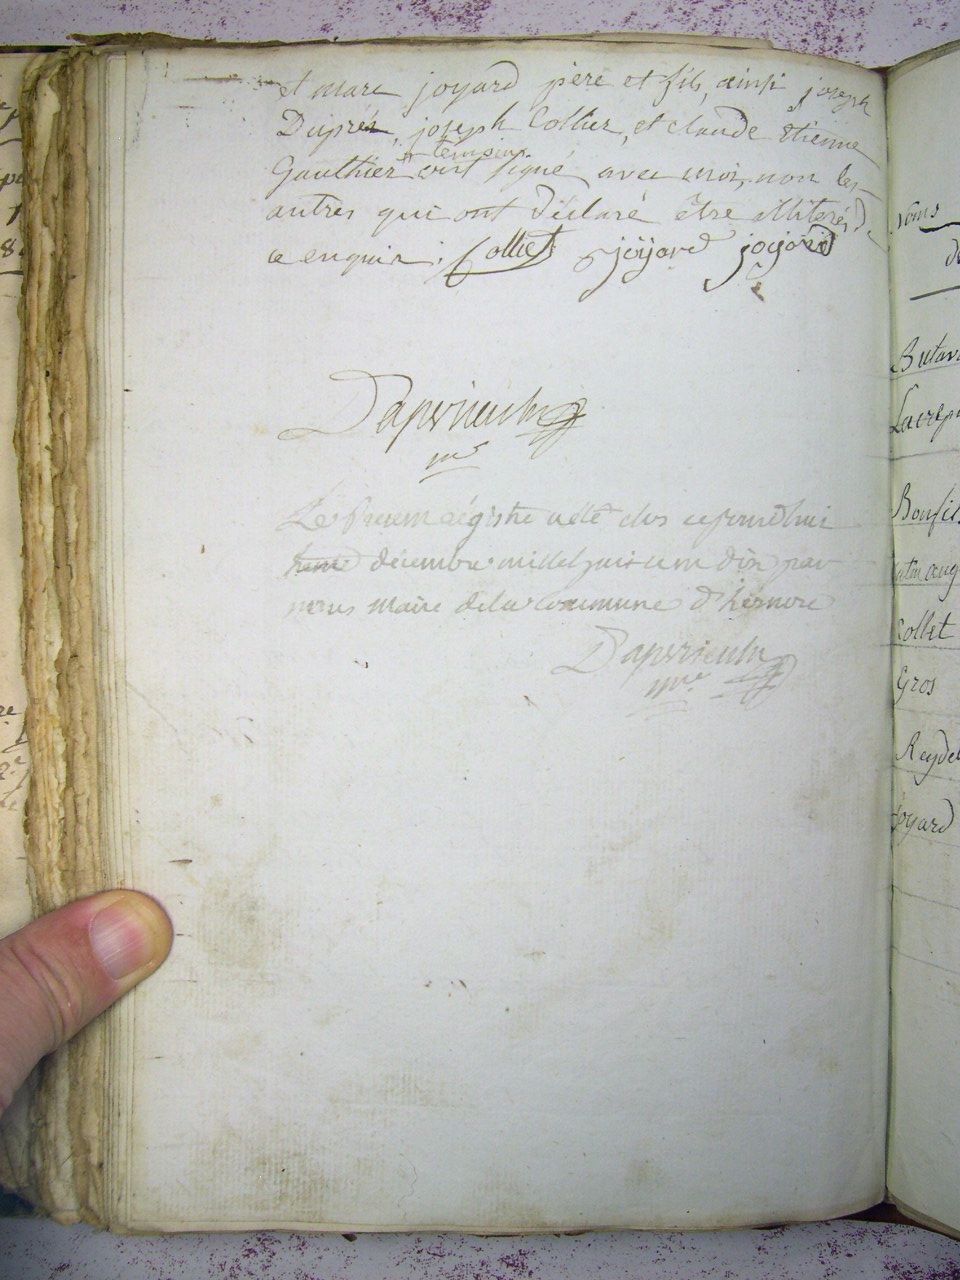 et marc joyard père et fils, ainsi joseph
Dupréz, joseph Collier, et claude Etienne
témoins
Gauthier ont signé avec moi, non les
autres qui ont déclaré être illiterés, de
ce enquis.
Collet joÿard joyard
Dapvrieulx
m.e
Le Présent régistre a été clos cejourd'hui
décembre mil huit cent dix par
nous maire de la Commune d'
Dapvrieulx
me
Noms
Butav
Lacrep
Bonfils
Collet
Gros
Reydel
joyard